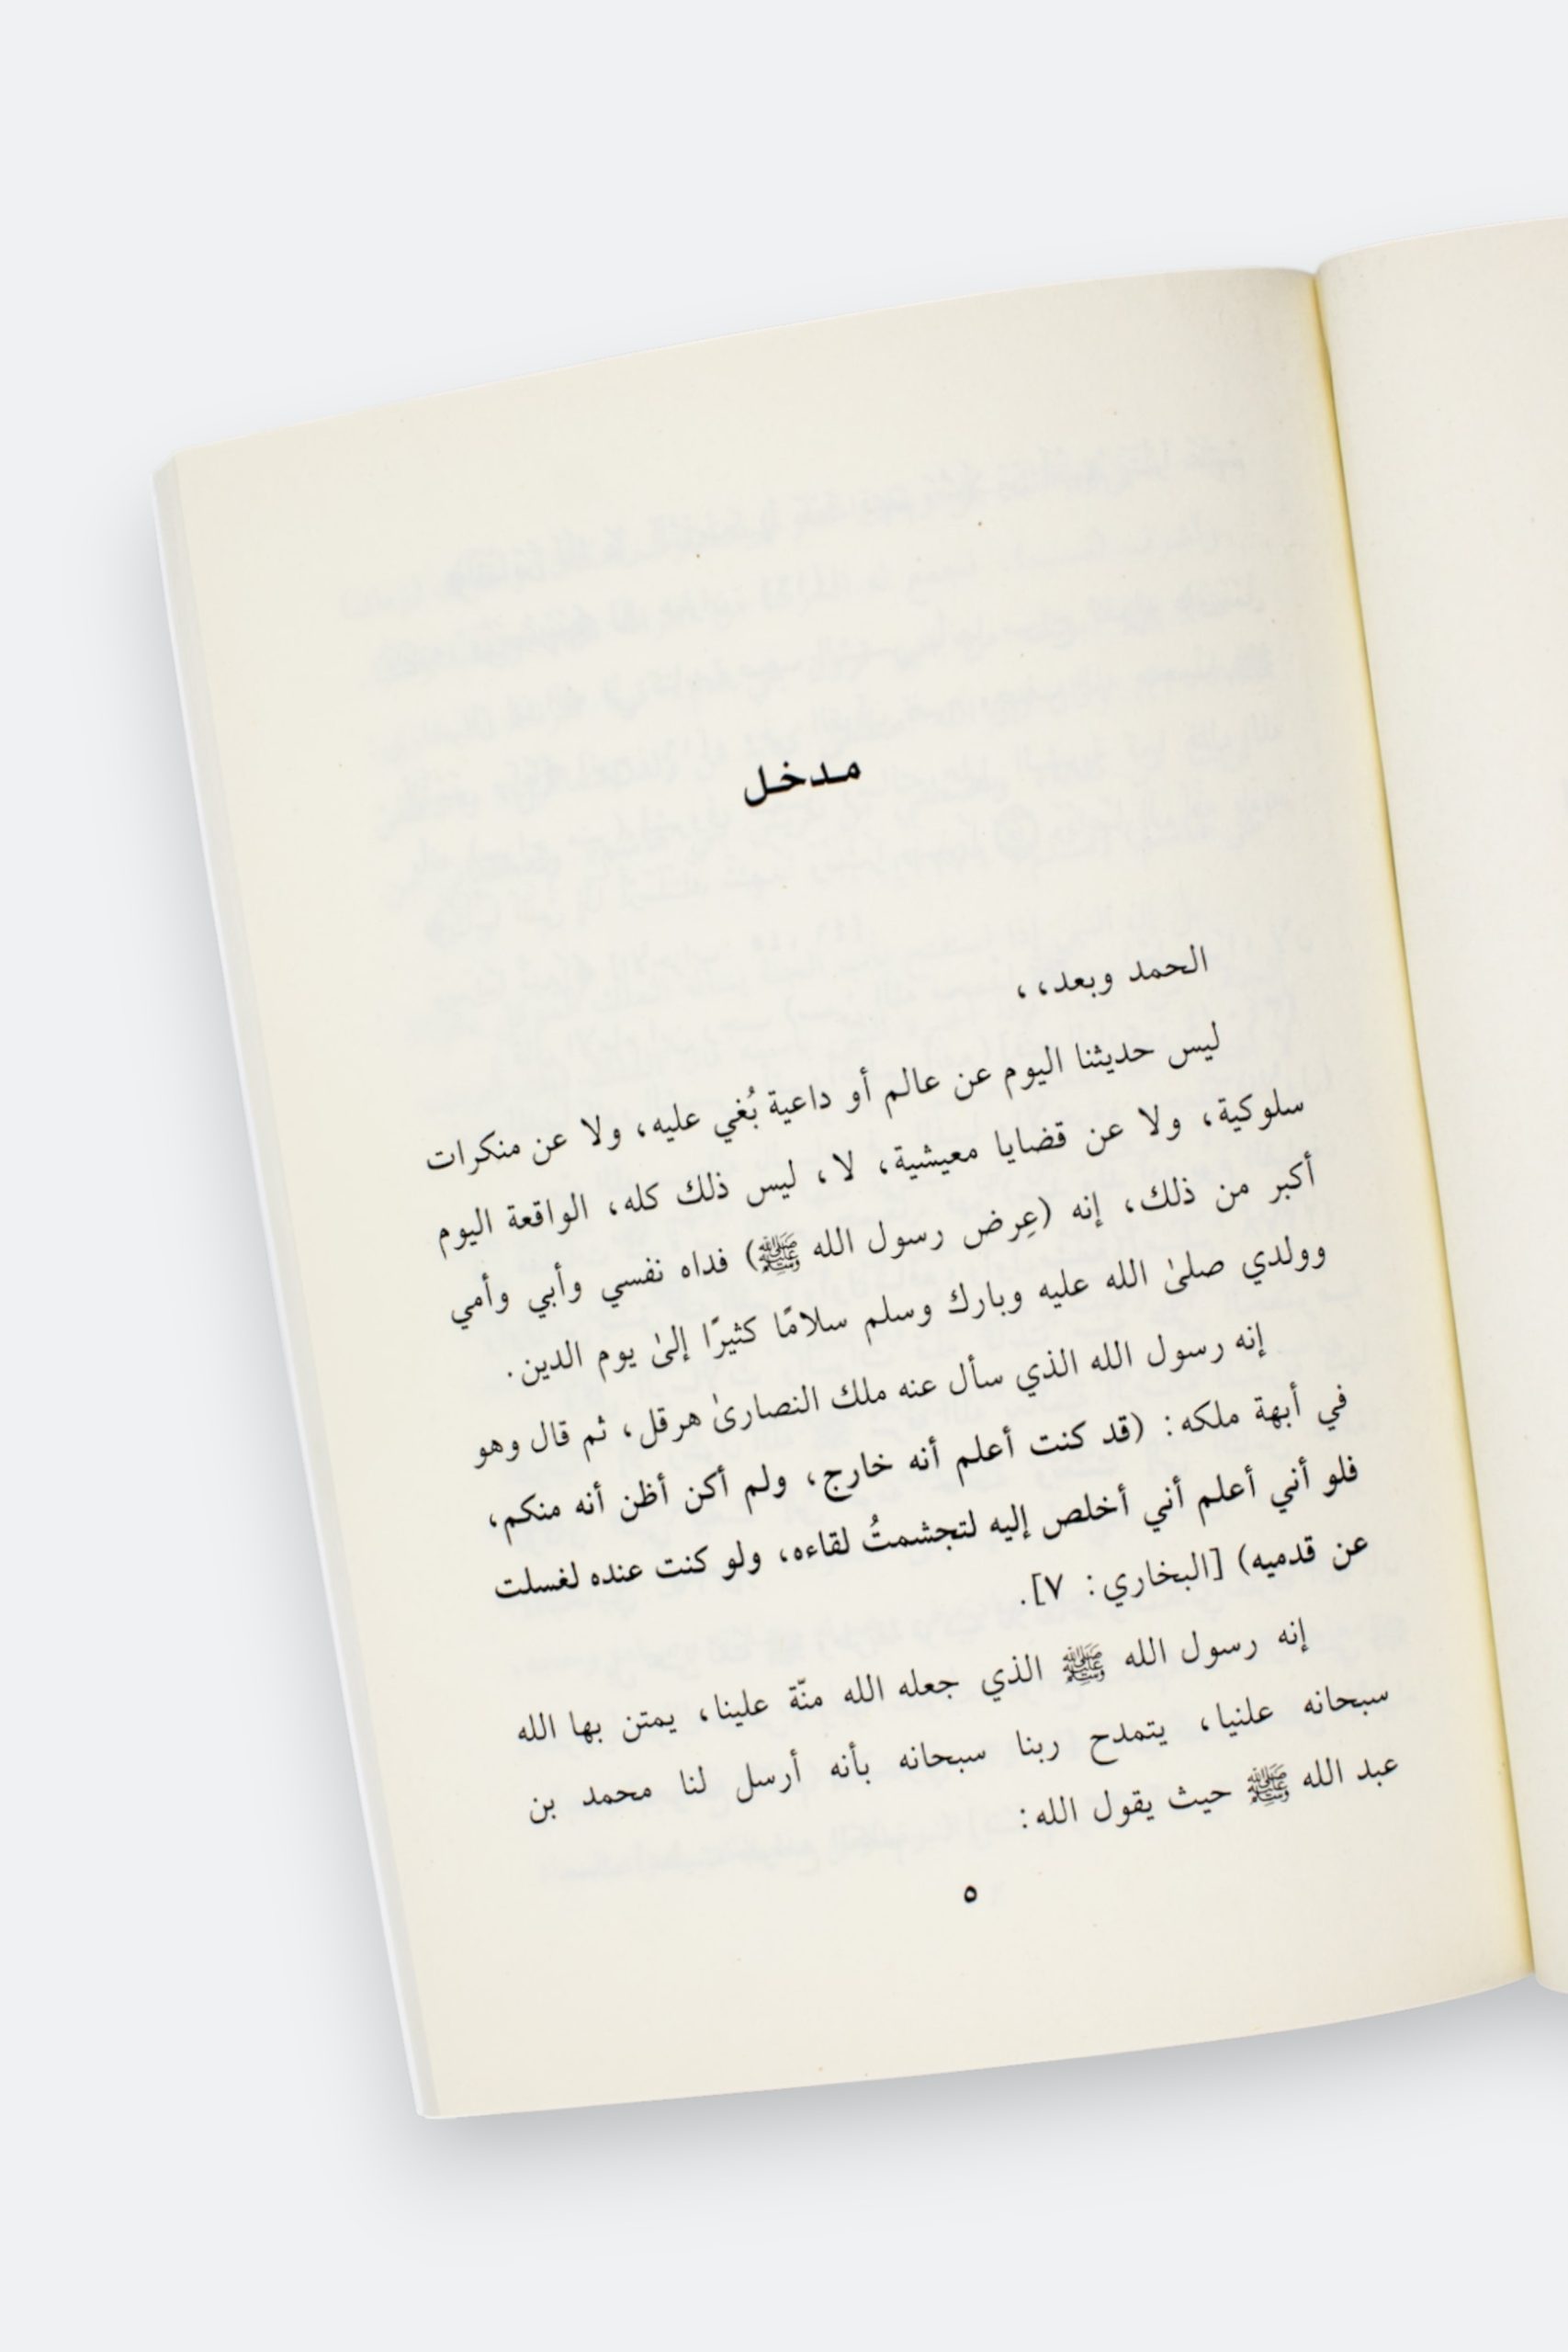 مدخل
الحمد وبعد،،
ليس حديثنا اليوم عن عالم أو داعية بُغي عليه، ولا عن منكرات
سلوكية، ولا عن قضايا معيشية، لا، ليس ذلك كله، الواقعة اليوم
أكبر من ذلك، إنه (عِرض رسول الله ﷺ) فداه نفسي وأبي وأمي
وولدي صلىٰ الله عليه وبارك وسلم سلامًا كثيرًا إلىٰ يوم الدين.
إنه رسول الله الذي سأل عنه ملك النصارىٰ هرقل، ثم قال وهو
في أبهة ملكه: (قد كنت أعلم أنه خارج، ولم أكن أظن أنه منكم،
فلو أني أعلم أني أخلص إليه لتجشمتُ لقاءه، ولو كنت عنده لغسلت
عن قدميه) [البخاري: ٧].
إنه رسول الله ﷺ الذي جعله الله منّة علينا، يمتن بها الله
سبحانه علنيا، يتمدح ربنا سبحانه بأنه أرسل لنا محمد بن
عبد الله ﷺ حيث يقول الله:
٥